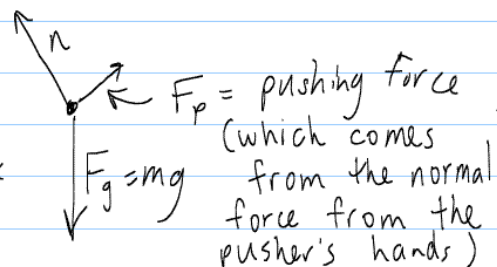 n
F_p = pushing force
(which comes
from the normal
F_g = mg
force from the
pusher's hands)